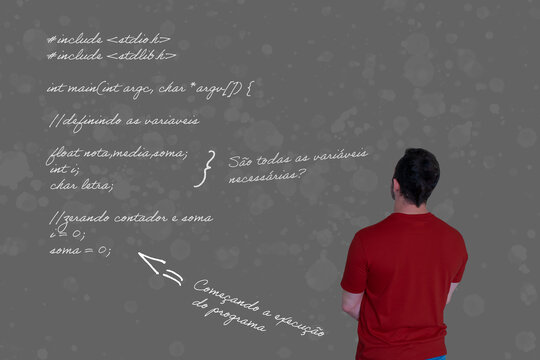 #include <stdio.h>
#include <stdlib.h>
int main(int argc, char *argv[]) {
//definindo as variaveis
float nota,media,soma;
int i;
char letra;
São todas as variáveis
necessárias?
//zerando contador e soma
i = 0;
soma = 0;
<=
Começando a execução
do programa